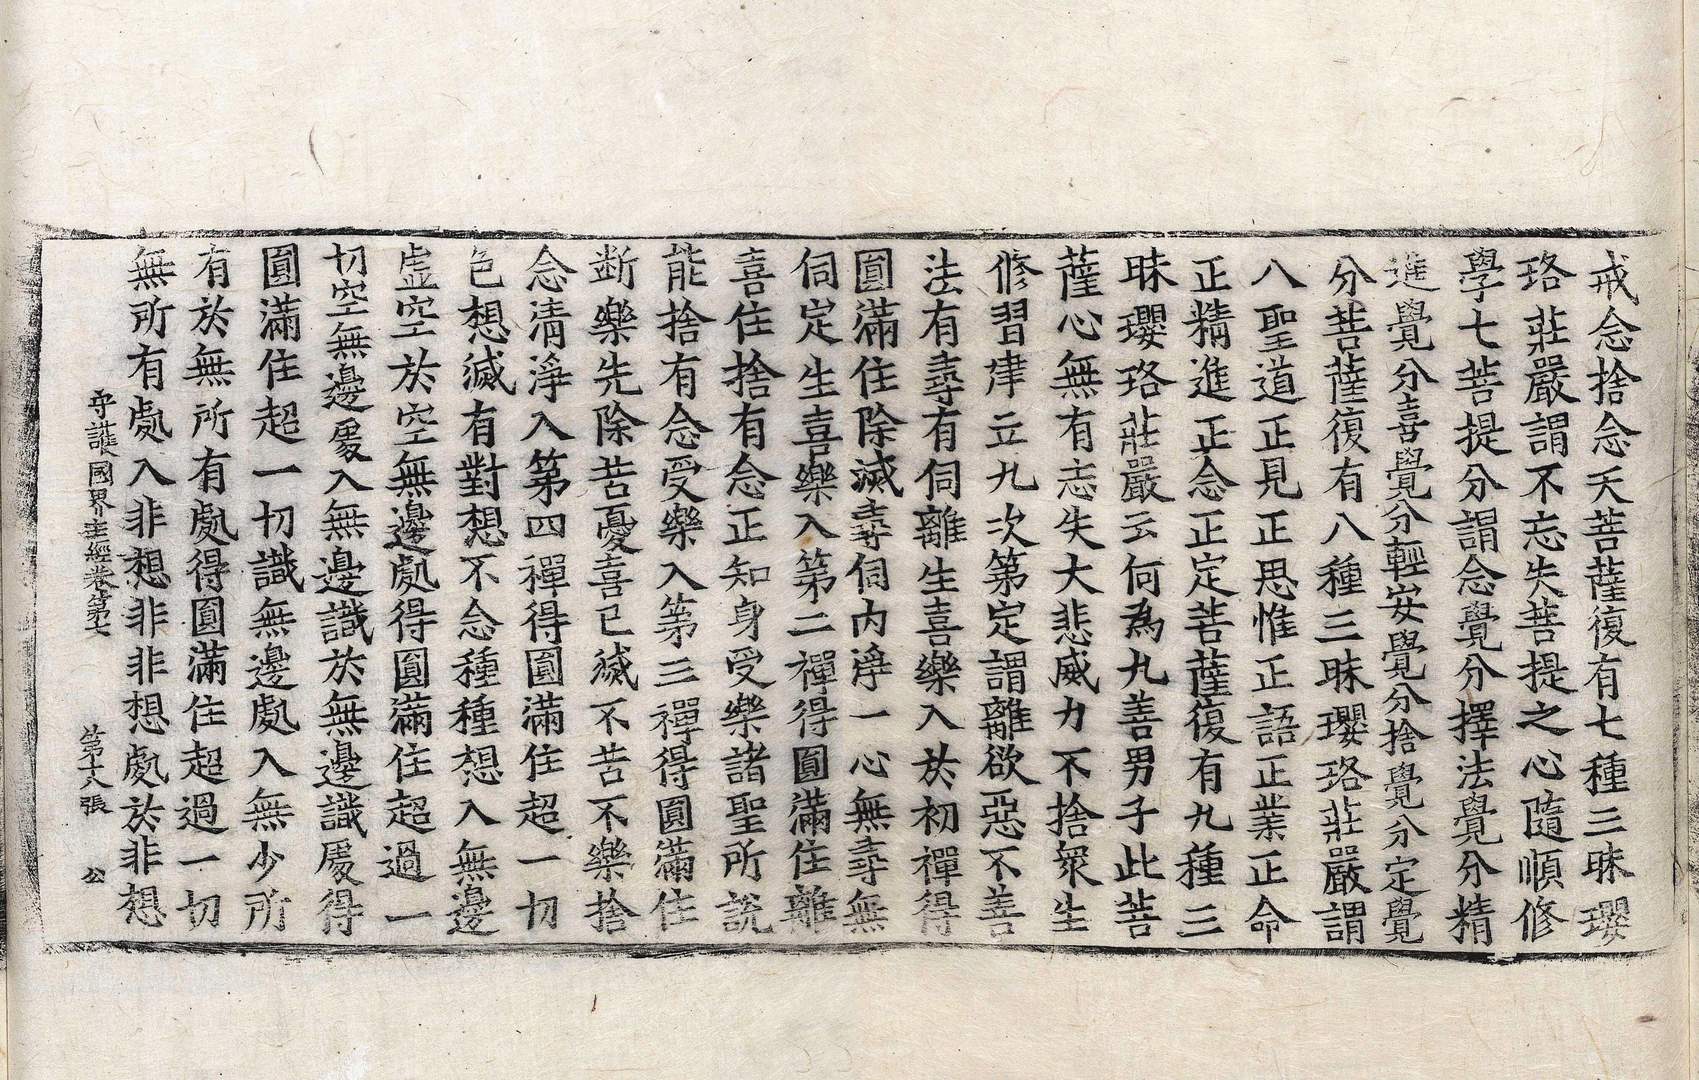 戒念捨念天菩薩復有七種三昧瓔
珞莊嚴謂不忘失菩提之心隨順修
學七菩提分謂念覺分擇法覺分精
進覺分喜覺分輕安覺分捨覺分定覺
分菩薩復有八種三昧瓔珞莊嚴謂
八聖道正見正思惟正語正業正命
正精進正念正定菩薩復有九種三
昧瓔珞莊嚴云何為九善男子此菩
薩心無有忘失大悲威力不捨衆生
修習建立九次第定謂離欲惡不善
法有尋有伺離生喜樂入於初禪得
圓滿住除滅尋伺内淨一心無尋無
伺定生喜樂入第二禪得圓滿住離
喜住捨有念正知身受樂諸聖所說
能捨有念受樂入第三禪得圓滿住
斷樂先除苦憂喜已滅不苦不樂捨
念清淨入第四禪得圓滿住超一切
色想滅有對想不念種種想入無邊
虛空於空無邊處得圓滿住超過一
切空無邊處入無邊識於無邊識處得
圓滿住超一切識無邊處入無少所
有於無所有處得圓滿住超過一切
無所有處入非想非非想處於非想
守護國界主經卷第七 第十八張 公